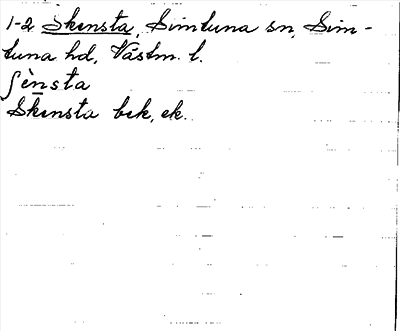 1-2 Skensta, Simtuna sn, Sim-
tuna hd, Västm. l.
ʃènsta
Skensta bek, ek.